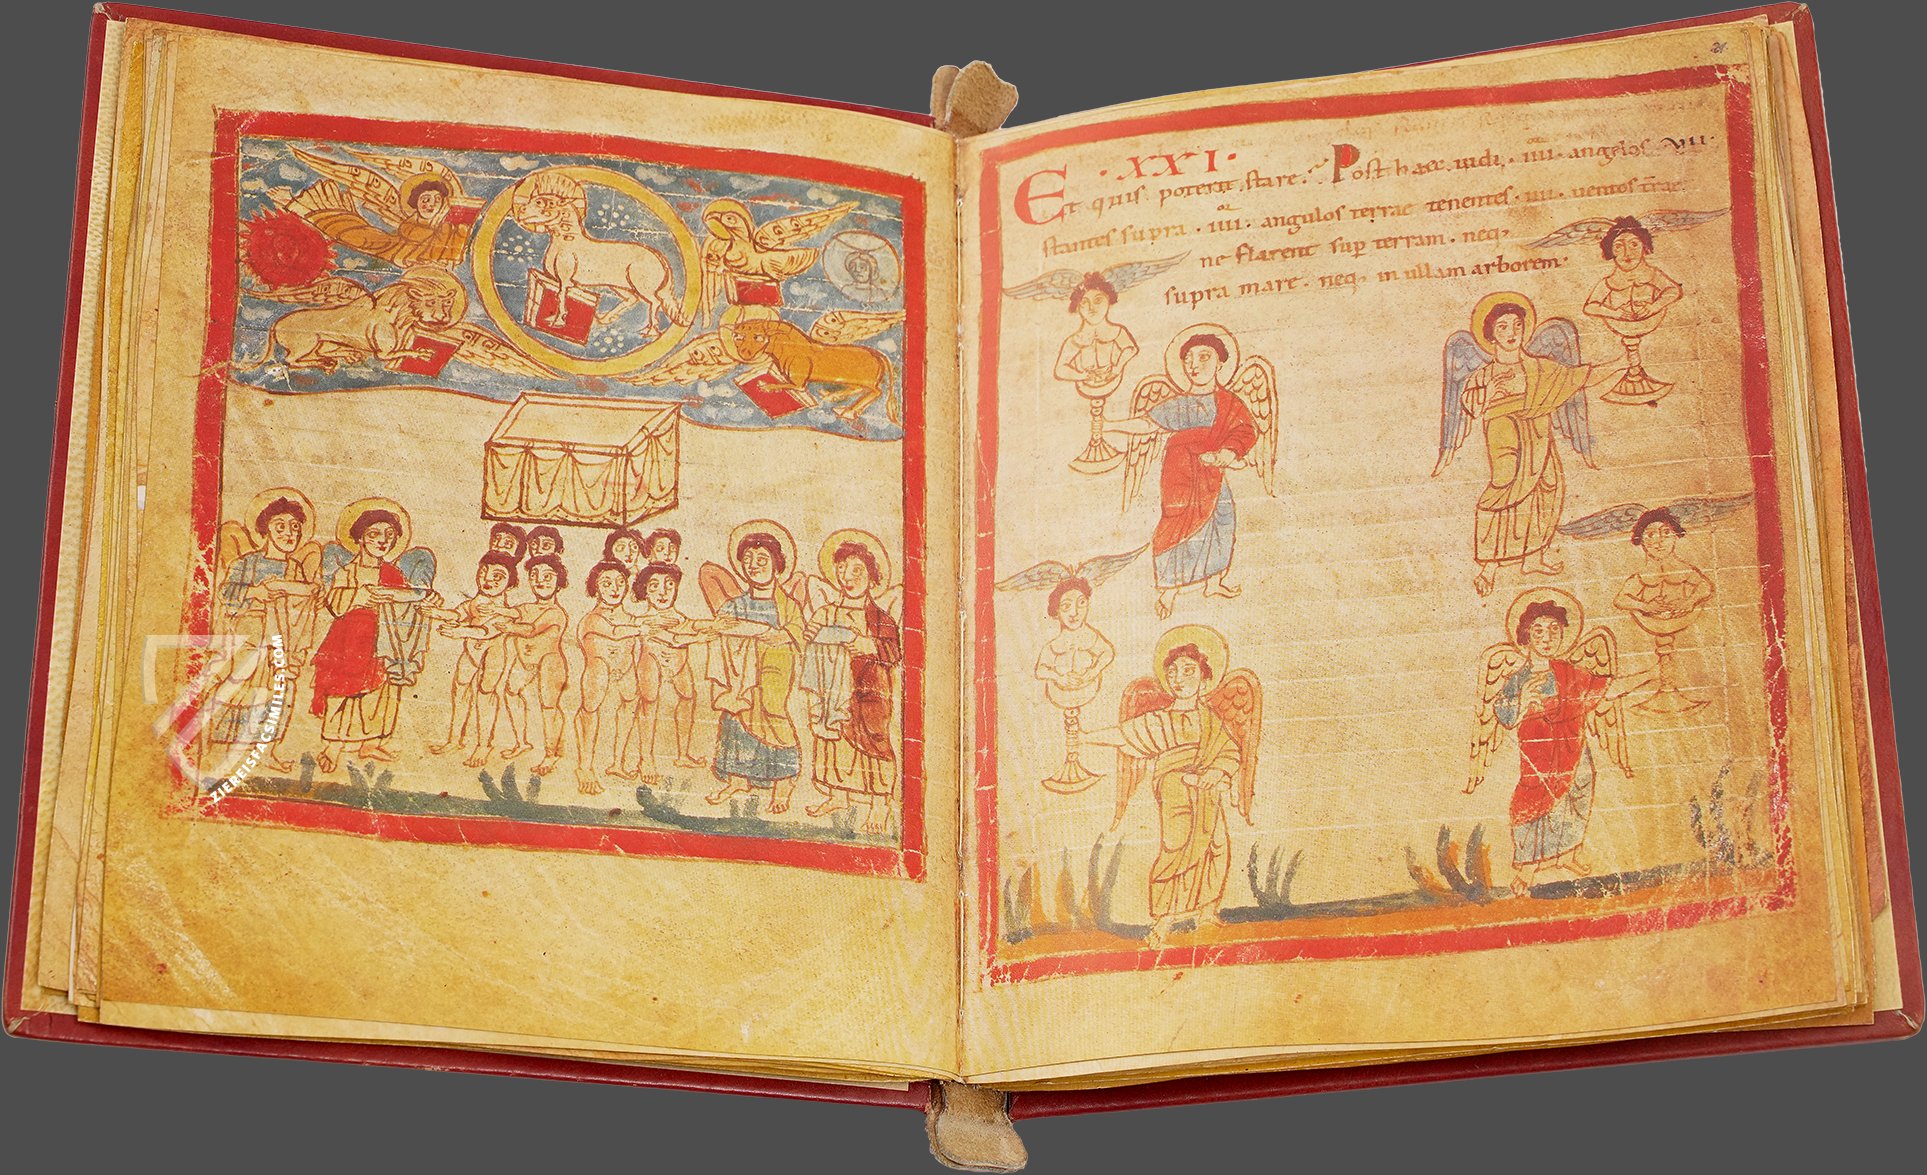 ZIEREISFACSIMILES.COM
21.
·XXI·
Et quis poterit stare. Post haec uidi · IIII · angelos
stantes supra · IIII · angulos terrae tenentes · IIII · uentos
ne flarent sup terram · neq;
supra mare · neq; in ullam arborem ·